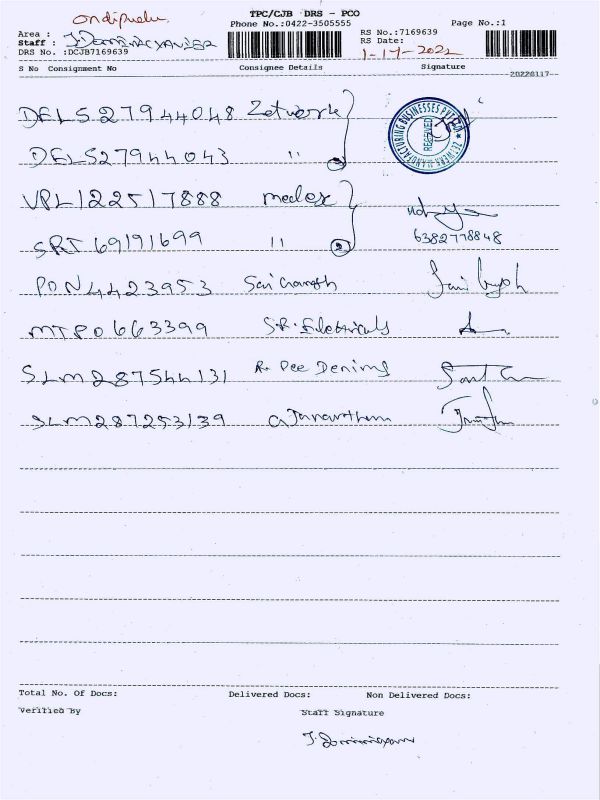 ondipudur
TPC/CJB DRS - PCO
Phone No.:0422-3505555
Page No.:1
Area :
Staff : J. Dominic XAVIER
DRS No. :DCJB7169639
RS No.:7169639
RS Date:
1-17-2022
S No Consignment No Consignee Details Signature
20220117
DEL527944048 Zetwerk
ZETWERK MANUFACTURING BUSINESSES PVT LTD
RECEIVED
DEL527944043 " 2
VPL122517888 medex
6382778848
SRT69191699 " 2
PON4423953 Sai
MTP0663399 S.R. Eletricals
SLM287544131 Pee Denims
SLM287253139
Total No. Of Docs: Delivered Docs: Non Delivered Docs:
Verified By Staff Signature